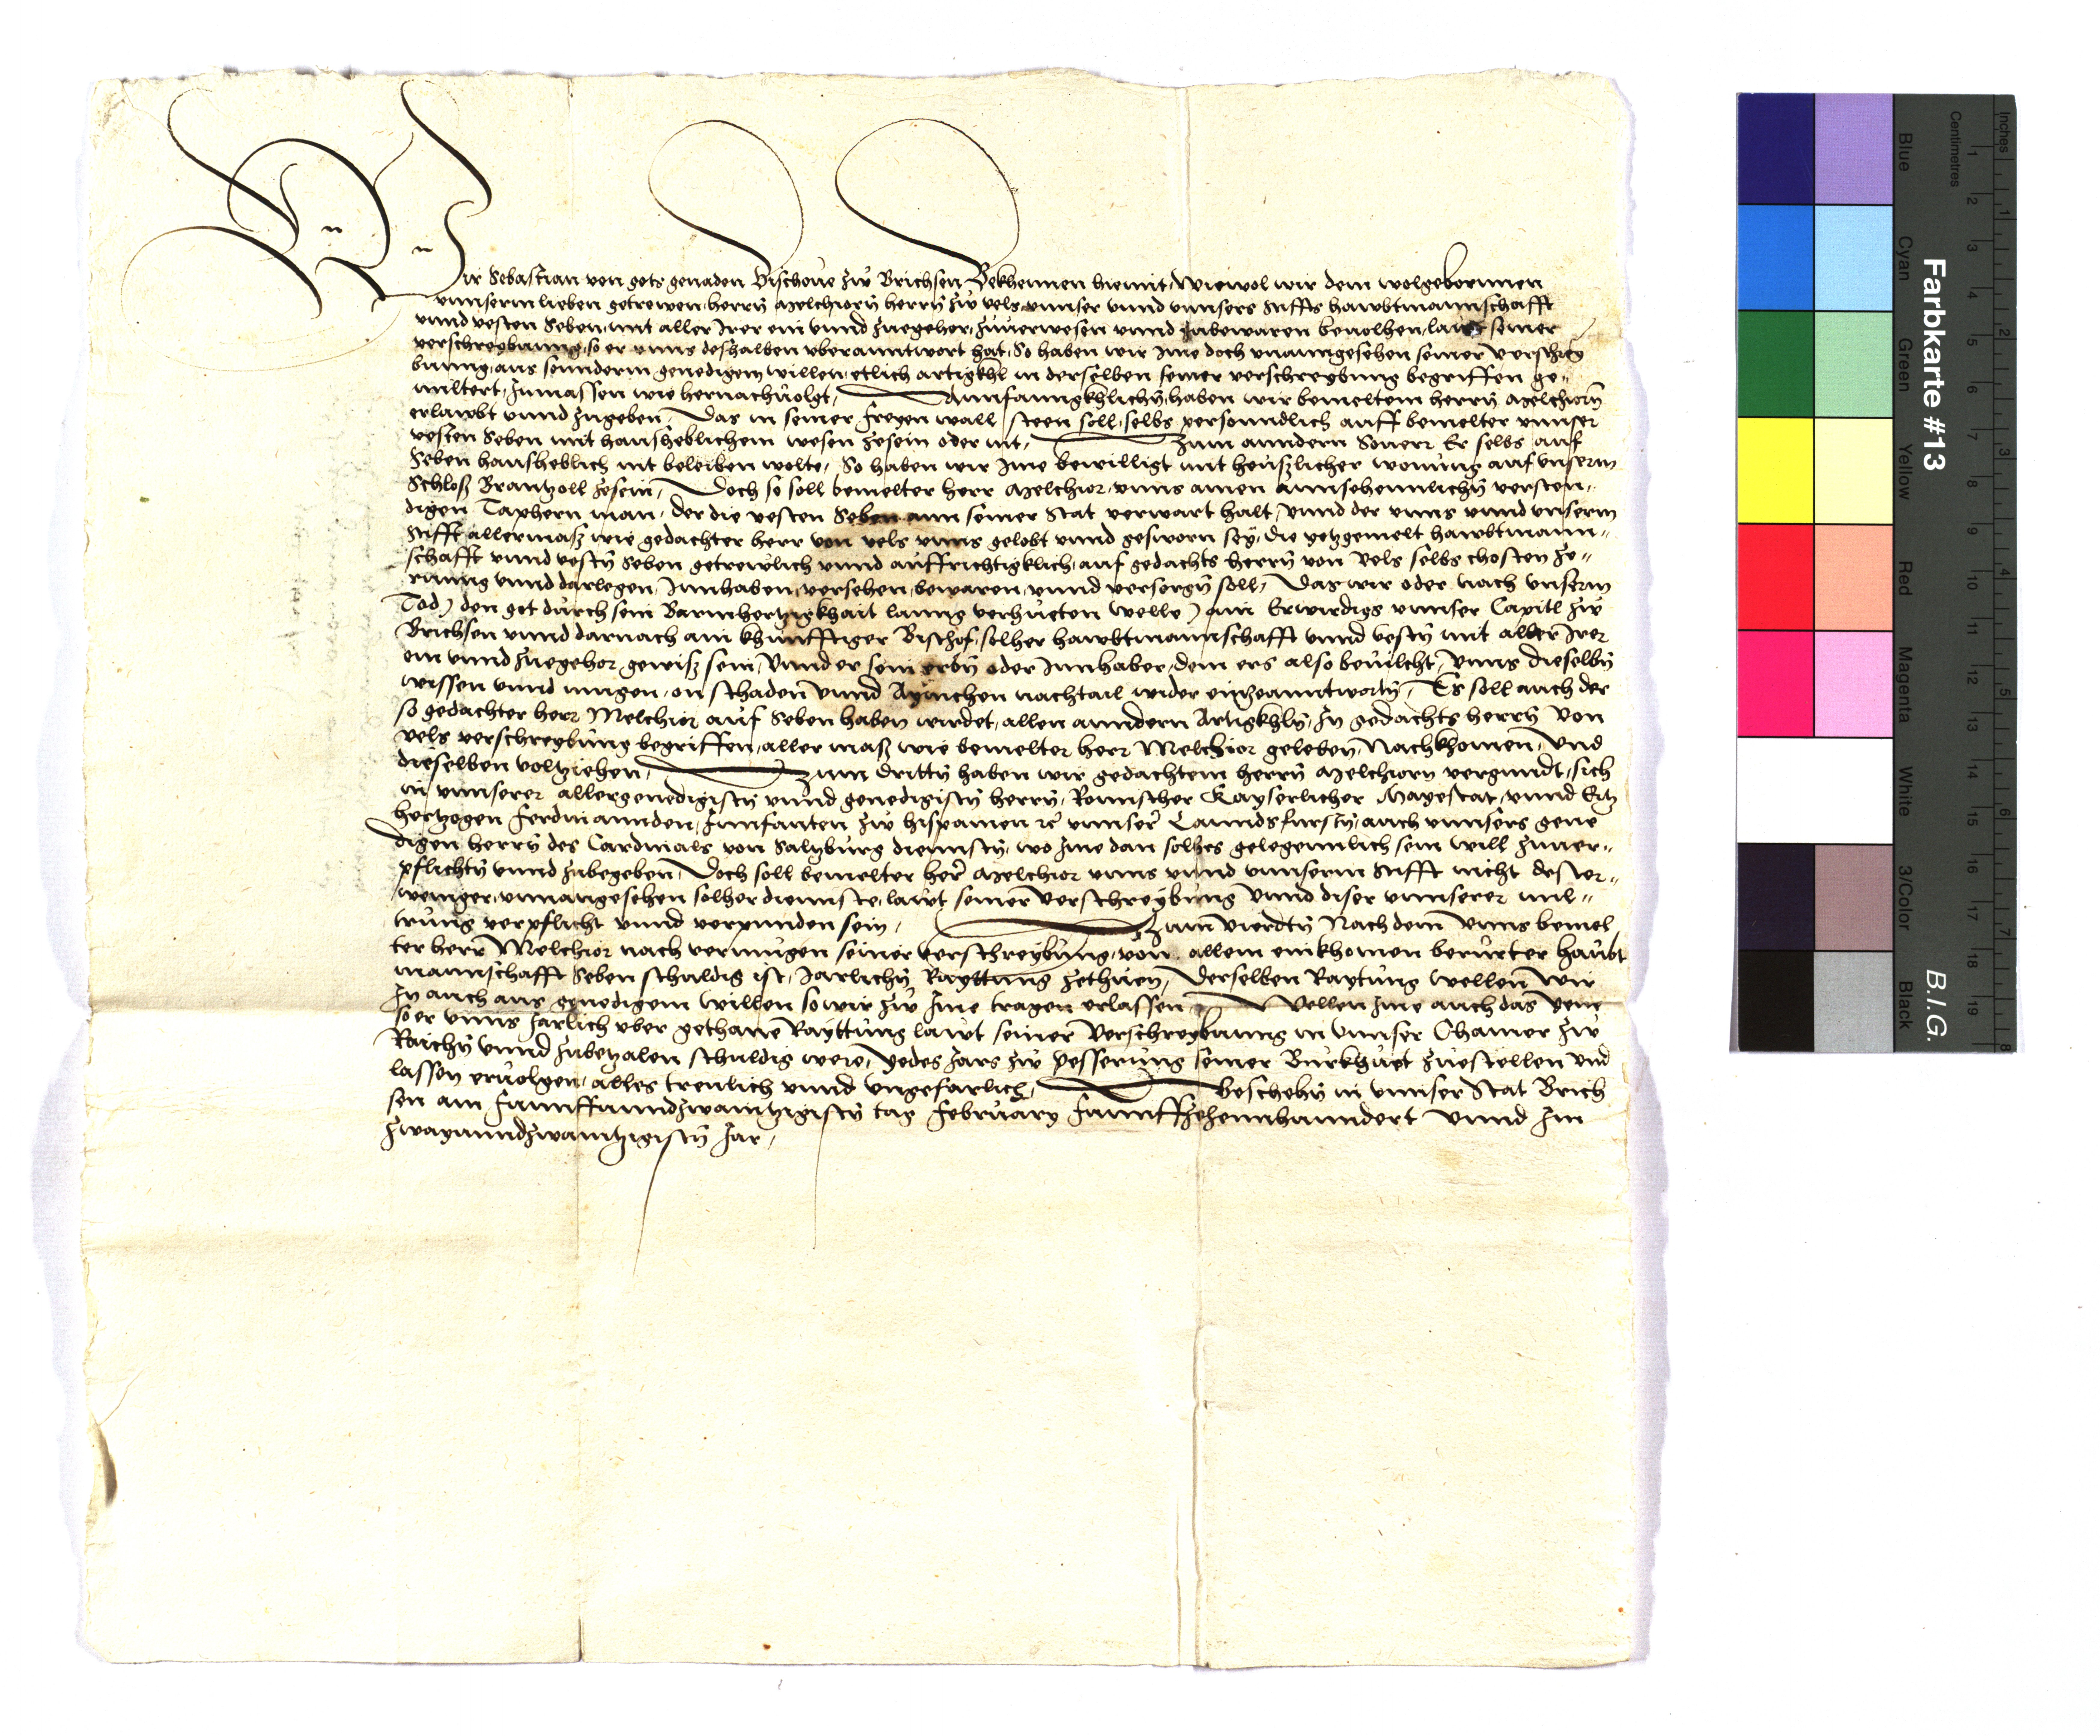 Wir Sebastian von gots genaden Bischoue zw Brichsen Bekhennen hiemit, Wiewol wir dem wolgebornnen
vnnserm lieben getrewen herrn Melchiorn herrn zw Vels vnnser vnnd vnnsers Stiffts hawbtmannschafft
vnnd vesten Seben, mit aller Irer ein vnnd zuegehor, zuuerwesen vnnd zubewaren beuolhen, lawt seiner
verschreybunng, so er vnns deshalben vberanntwort hat, So haben wir Ime doch vnanngesehen seiner verschrey
bunng, aus sonnderm genedigem willen, etlich artigkhl in derselben seiner verschreybung begriffen ge-
miltert, Inmassen wie hernachuolgt, Annfanngkhlichn, haben wir bemeltem herrn Melchiorn
erlawbt vnnd zugeben, Das in seiner freyen wall steen soll, selbs personndlich auff bemelter vnnser
vesten Seben mit hausheblichem wesen zesein oder nit, Zum anndern Souerr Er selbs auf
Seben hausheblich nit beleiben wolte, So haben wir Ime bewilligt mit heuszlicher wonung auf vnserm
Schlosz Brantzoll zesein, Doch so soll bemelter herr Melchior, vnns ainen annsehennlichn versten-
digen Taphern man, der die vesten Seben ann seiner Stat verwart halt, vnnd der vnns vnnd vnserm
Stifft allermasz wie gedachter herr von Vels vnns gelobt vnnd gesworn sey, die yetzgemelt hawbtmann-
schafft vnnd vestn Seben getrewlich vnnd auffrichtigklich, auf gedachts herrn von Vels selbs chosten ze-
runng vnnd darlegen, Innhaben, versehen, bewaren, vnnd versorgn soll, Das wir oder nach vnserm
Tod, (den got durch sein Barmhertzigkhait lanng verhueten welle) ain Erwirdigs vnnser Capitl zw
Brichsen vnnd darnach ain khunfftiger Bischof, solher hawbtmannschafft vnnd vestn mit aller Irer
ein vnnd zuegehor, gewisz sein, Vnnd er sein erbn oder Innhaber, dem ers also beuilcht, vnns dieselbn
wissen vnnd mugen, on schaden vnnd Aynichen nachtail wider einzeanntwortn, Es soll auch der
so gedachter herr Melchior auf Seben haben wirdet, allen anndern Artigkhln, In gedachts herrn von
Vels verschreybung begriffen, aller masz wie bemelter herr Melchior geleben, Nachkhomen, Vnd
dieselben voltziehen, Zum drittn haben wir gedachtem herrn Melchiorn vergundt, sich
in vnnserer allergenedigistn vnnd genedigistn herrn, Romischer Kayserlicher Mayestat, vnnd Ertz
hertzogen Ferdinannden, Innfanten zw hispanien rc vnnser Lanndsfurstn, auch vnnsers gene
digen herrn des Cardinals von Saltzburg diennstn, wo Ime dan solhes gelegennlich sein will zuuer-
pflichtn vnnd zubegeben, Doch soll bemelter her Melchior vnns vnnd vnnserm Stifft nicht dester-
weniger, vnnangesehen solher diennste, lawt seiner verschreybung vnnd diser vnnserer mil-
trung verpflicht vnnd verpunden sein, Zum Vierdtn Nachdem vnns bemel
ter herr Melchior nach vermugen seiner verschreybung, von allem einkhomen berurter haubt
mannschafft Seben schuldig ist, Jarlichn Rayttung zethuen, Derselben Raytung wellen wir
In auch aus genedigem willen so wir zw Ime tragen erlassen, Wellen Ime auch das yene
so er vnns Jarlich vber gethane Rayttung lawt seiner Verschreybunng in vnnser Chamer zw
Raichn vnnd zubetzalen schuldig were, yedes Jars zw pesserung seiner Burkhuet zuestellen vnd
lassen eruolgen, alles trewlich vnnd vngefarlich, beschehn in vnnser Stat Brich
sen am Funnffunndzwaintzigistn tag February Funnffzehennhunndert vnnd Im
Zwayunndzwaintzigistn Jar,
Farbkarte #13
B.I.G.
Inches
Centimetres
Blue
Cyan
Green
Yellow
Red
Magenta
White
3/Color
Black
1
2
3
4
5
6
7
8
9
10
11
12
13
14
15
16
17
18
19
1
2
3
4
5
6
7
8